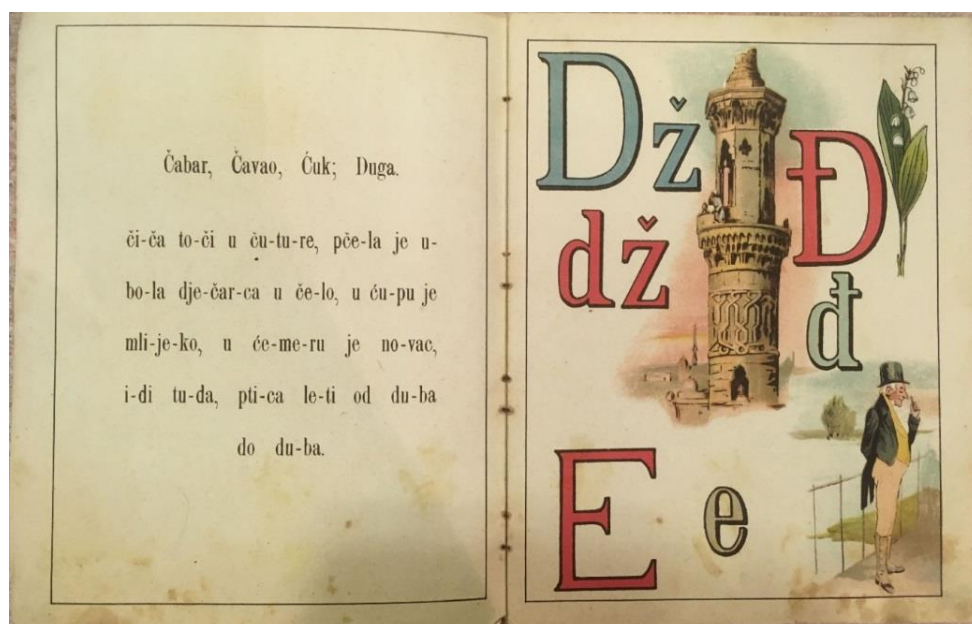 Čabar, Čavao, Ćuk; Duga.
či-ča to-či u ču-tu-re, pče-la je u-
bo-la dje-čar-ca u če-lo, u ću-pu je
mli-je-ko, u će-me-ru je no-vac,
i-di tu-da, pti-ca le-ti od du-ba
do du-ba.
Dž
dž
Đ
đ
E e